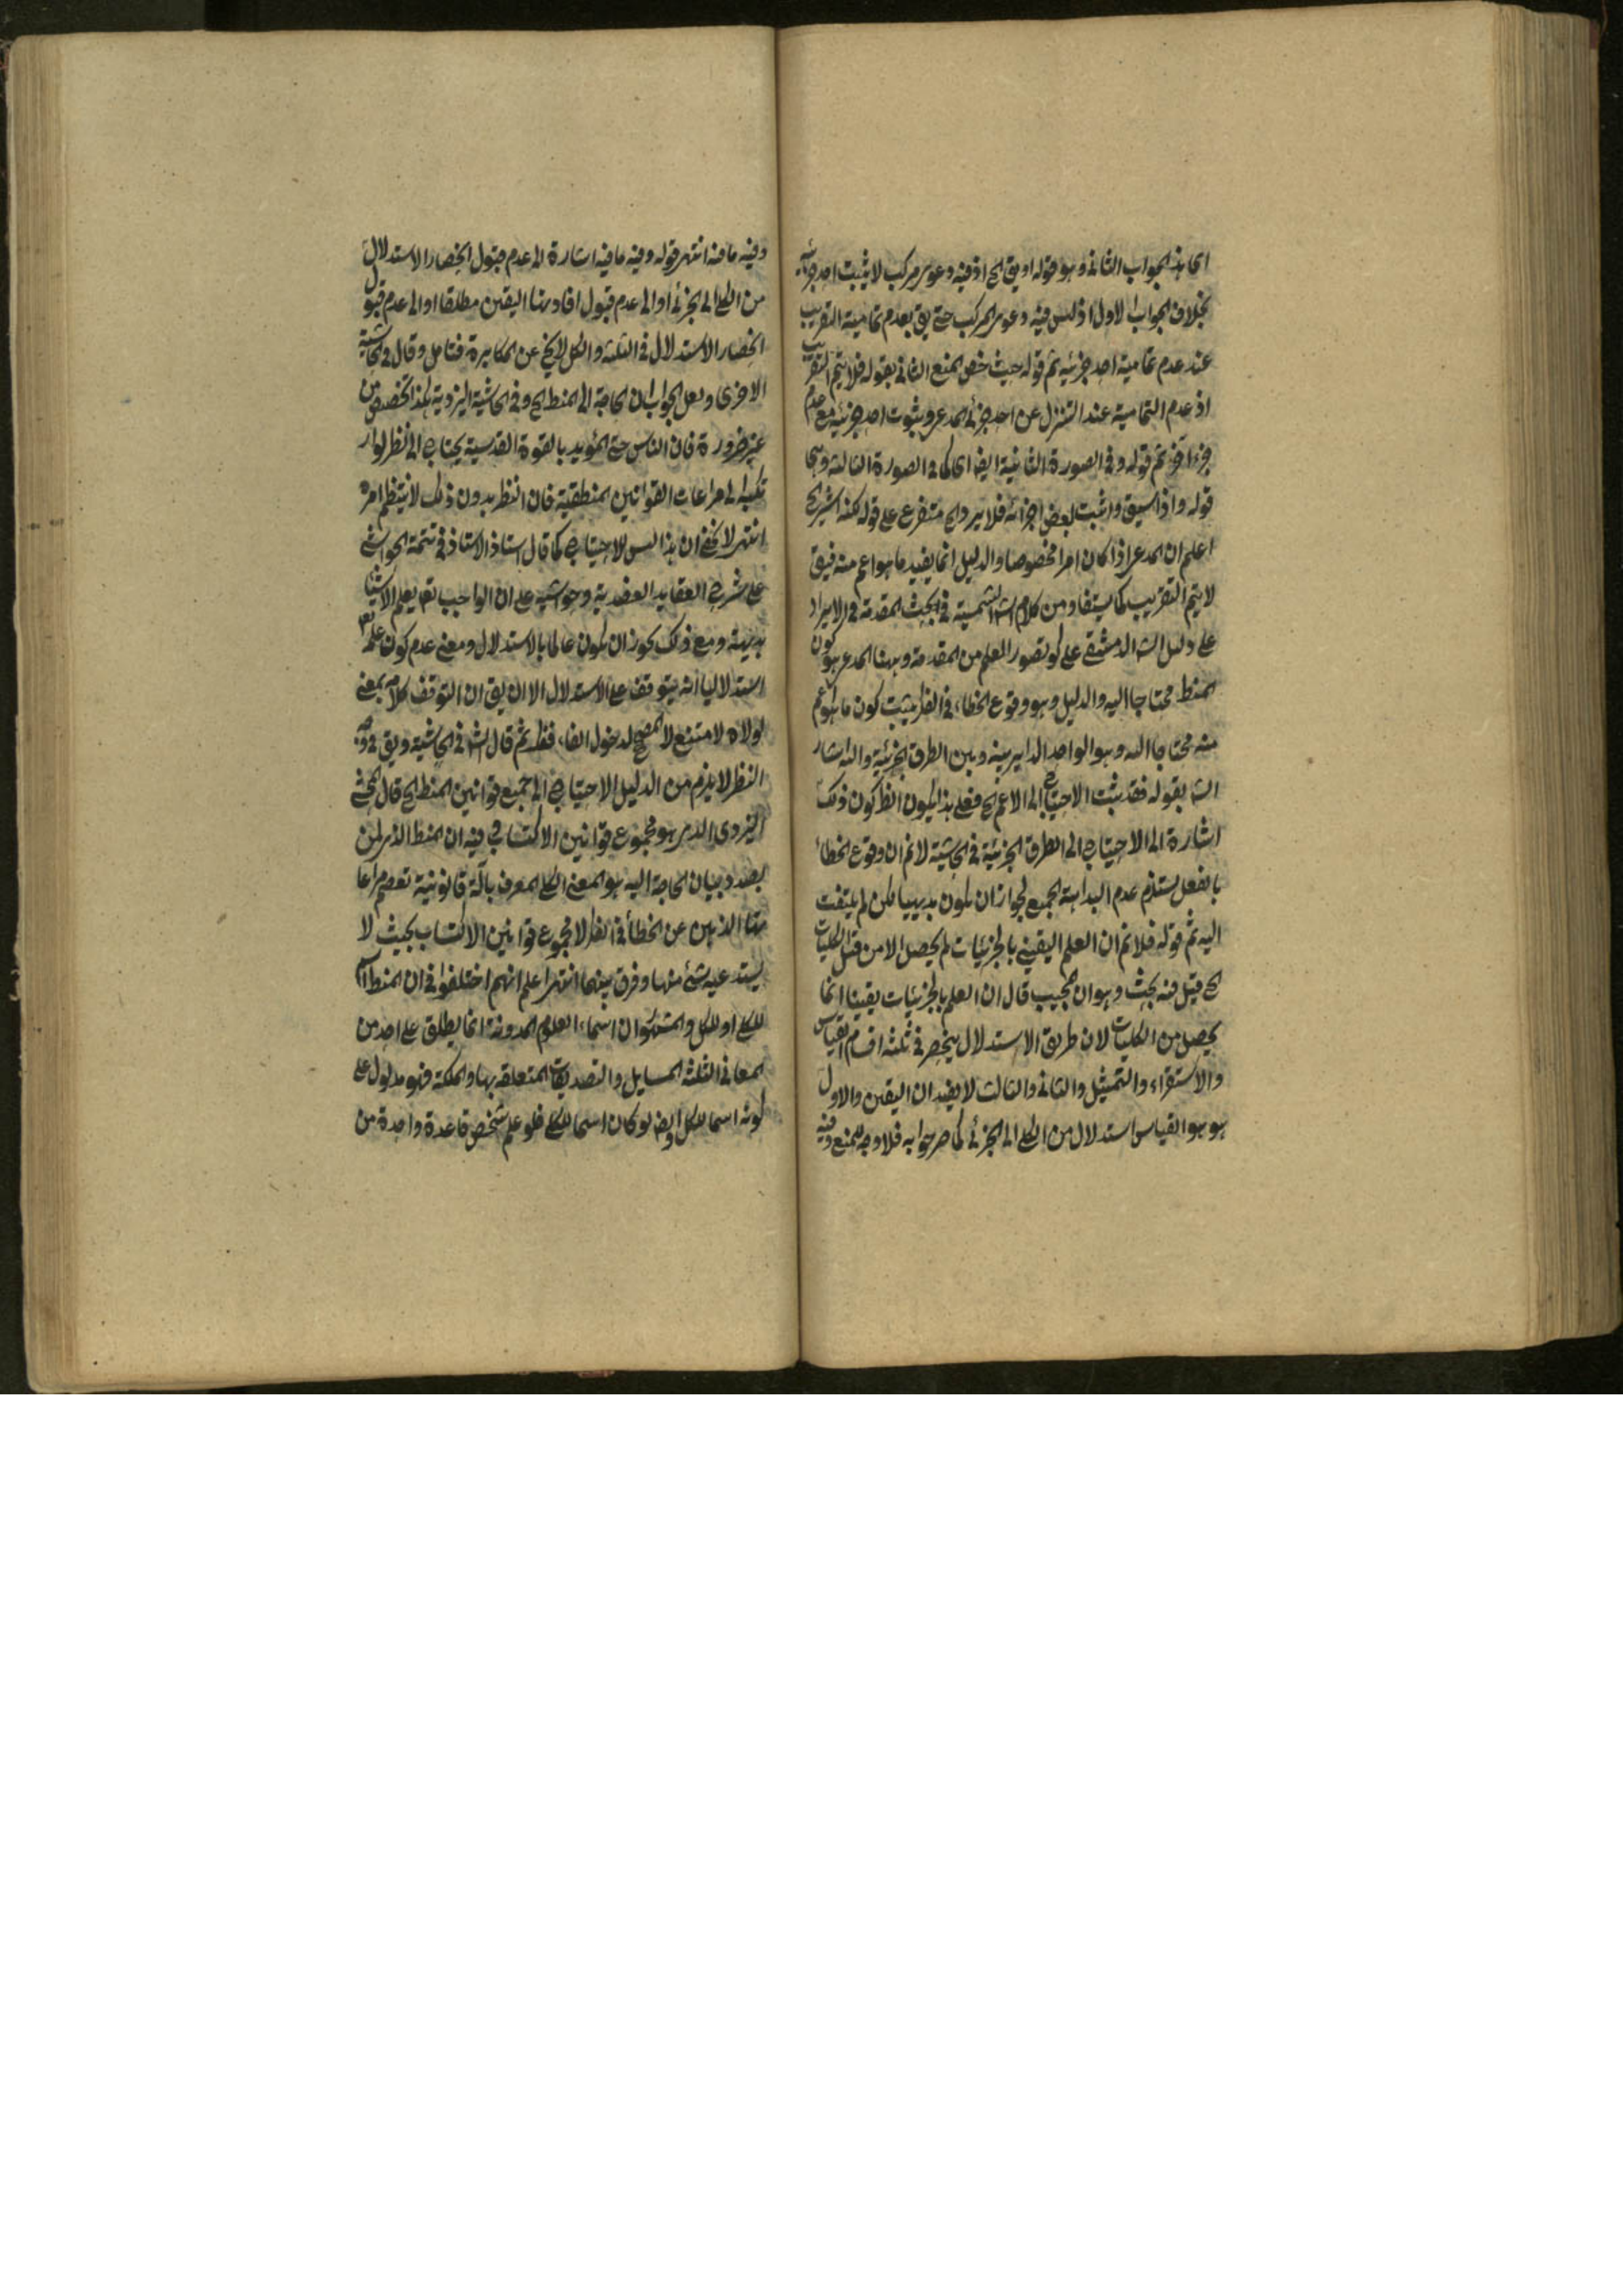 اى هذا الجواب الثانى وهو قوله او يق الخ اذ فيه دعوى مركب لا يثبت احد جزئيه
بخلاف الجواب الاول اذ ليس فيه دعوى المركب حتى يق بعدم تمامية التقريب
عند عدم تمامية احد جزئيه ثم قوله حيث خص المنع الثانى بقوله فلا يتم التقريب
اذ عدم التمامية عند التنزل عن احد جزئى المدعى وبثبوت احد جزئيه مع عدم
جزء اخر ثم قوله وفى الصورة الثانية ايضا اى كما فى الصورة الثالثة وهى
قوله واذا سيق واثبت بعض اجزائه فلا يرد الخ متفرع على قوله لكنه اشير الخ
اعلم ان المدعى اذا كان امرا مخصوصا والدليل انما يفيد ما هو اعم منه فيق
لا يتم التقريب كما يستفاد من كلام الش الشمسية فى بحث المقدمة فى الايراد
على دليل الش الدمشقى على كو تصور العلم من المقدمة وههنا المدعى هو كون
المنط محتاجا اليه والدليل وهو وقوع الخطاء فى الفكر يثبت كون ما هو اعم
منه محتاجا اليه وهو الواحد الداير بينه وبين الطرق الجزئية واليه اشار
الش بقوله فقد يثبت الاحتياج الى الاعم الخ فعلى هذا يكون الظ كون ذلك
اشارة الى الاحتياج الى الطرق الجزئية فى الحاشية لا نم ان وقوع الخطاء
بالفعل يستلزم عدم البداهة الجميع لجواز ان يكون بديهيا لكن لم يلتفت
اليه ثم قوله فلا نم ان العلم اليقينى بالجزئيات لم يحصل الا من قبل الكليات
الخ قيل فيه بحث وهو ان المجيب قال ان العلم بالجزئيات يقينا انما
يحصل من الكليات لان طريق الاستدلال ينحصر فى ثلثة اقسام القياس
والاستقراء والتمثيل والثانى والثالث لا يفيدان اليقين والاول
هو هو القياس استدلال من الكلى الى الجزئى كما صرحوا به فلا وجه للمنع وفيه
وفيه ما فيه انتهى قوله وفيه ما فيه اشارة الى عدم قبول انحصار الاستدلال
من الكلى الى الجزئى او الى عدم قبول افادتهما اليقين مطلقا او الى عدم قبول
انحصار الاستدلال فى الثلثة والكل لا يخ عن المكابرة فتامل وقال فى الحاشية
الاخرى ولعل الجواب ان الحاجة الى المنط الخ وفى الحاشية اليزدية هذا تخصيص من
غير ضرورة فان الناس حتى المؤيد بالقوة القدسية يحتاج الى النظر لوار
تكبه الى مراعات القوانين المنطقية فان النظر بدون ذلك لا ينتظم امره
انتهى لا يخفى ان هذا ليس للاحتياج كما قال استاذ الاستاذ فى تتمة الحواشى
على شرح العقايد العضدية وحواشيه على ان الواجب تعا يعلم الاشياء
بديهة ومع ذلك يجوز ان يكون عالما بالاستدلال ومعنى عدم كون علمه تعا
استدلاليا انه يتوقف على الاستدلال الا ان يق ان التوقف كلامه بمعنى
لولاه لامتنع لا المصحح لدخول الفاء فقط ثم قال الش فى الحاشية ويق فى
النظر لا يلزم من الدليل الاحتياج الى جميع قوانين المنط الخ قال المحشى
اليزدى الذى هو مجموع قوانين الاكتساب فيه ان المنط الذى نحن
بصدد بيان الحاجة اليه هو المعنى الكلى المعرف بآلة قانونية تعصم مراعا
تها الذهن عن الخطأ فى الفكر لا مجموع قوانين الاكتساب بحيث لا
يستدعيه شئ منها وفرق بينهما انتهى اعلم انهم اختلفوا فى ان المنط
للكلى او للكل والمشهور ان اسماء العلوم المدونة انما يطلق على احد من
المعانى الثلثة المسايل والتصديقات المتعلقة بها والملكة فهو مدلول على
كونه اسما للكل وايضا لو كان اسما للكلى فلو علم شخص قاعدة واحدة من